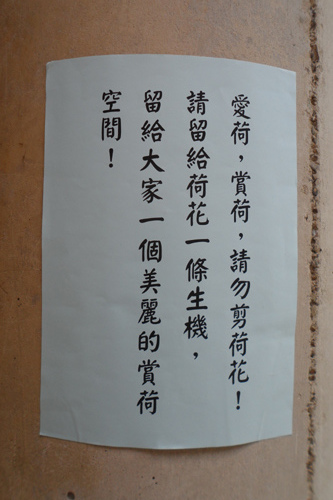 愛荷，賞荷，請勿剪荷花！
請留給荷花一條生機，
留給大家一個美麗的賞荷
空間！